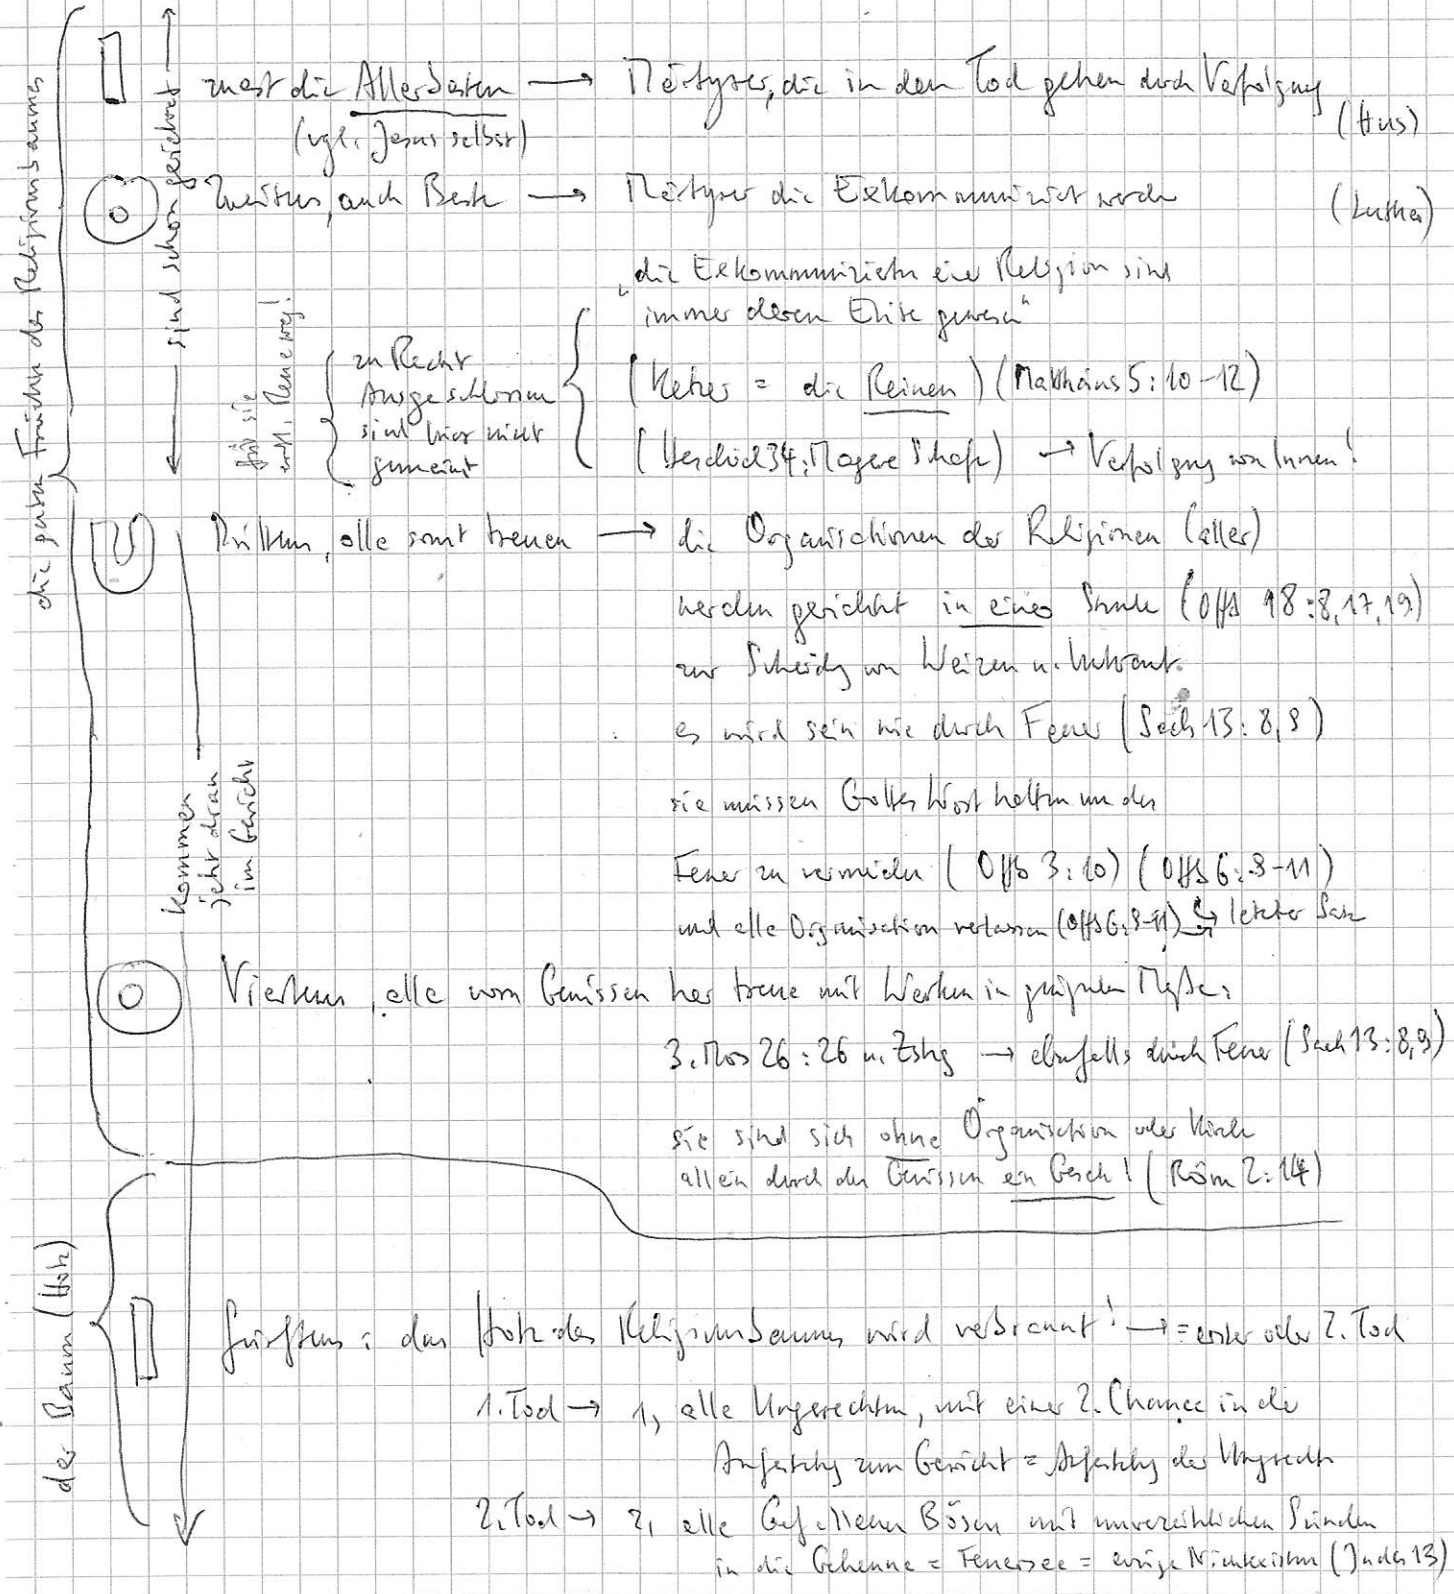 zuerst die Allerbesten → Märtyrer, die in den Tod gehen durch Verfolgung
(Hus)
(vgl. Jesus selbst)
Zweitens, auch Beste → Märtyrer die Exkommuniziert werden
(Luther)
„die Exkommunizierten einer Religion sind
immer deren Elite gewesen"
zu Recht
Ausgeschlossene
sind hier nicht
gemeint
für sie
Reue weg!
(Ketzer = die Reinen) (Matthäus 5:10-12)
(Hesekiel 34: Magere Schafe) → Verfolgung von Innen!
sind schon gerichtet
die guten Früchte des Religionsbaumes
Drittens, alle sonst treuen → die Organisationen der Religionen (aller)
werden gerichtet in einer Stunde (Offb 18:8,17,19)
zur Scheidung von Weizen u. Unkraut.
es wird sein wie durch Feuer (Sach 13:8,9)
sie müssen Gottes Wort halten um das
Feuer zu vermeiden (Offb 3:10) (Offb 6:9-11)
und alle Organisation verlassen (Offb 6:9-11) letzter Satz
kommen
jetzt dran
im Gericht
Viertens, alle vom Gewissen her treue mit Werken in Maße:
3. Mos 26:26 u. Zshg → ebenfalls durch Feuer (Sach 13:8,9)
sie sind sich ohne Organisation oder Kirche
allein durch das Gewissen ein Gesetz! (Röm 2:14)
der Baum (Holz)
fünftens: das Holz des Religionsbaumes wird verbrannt! → = erster oder 2. Tod
1. Tod → 1, alle Ungerechten, mit einer 2. Chance in die
Auferstehung zum Gericht = Auferstehung der Ungerechten
2. Tod → 2, alle Gefallenen Bösen mit unverzeihlichen Sünden
in die Gehenna = Feuersee = ewige Nichtexistenz (Judas 13)